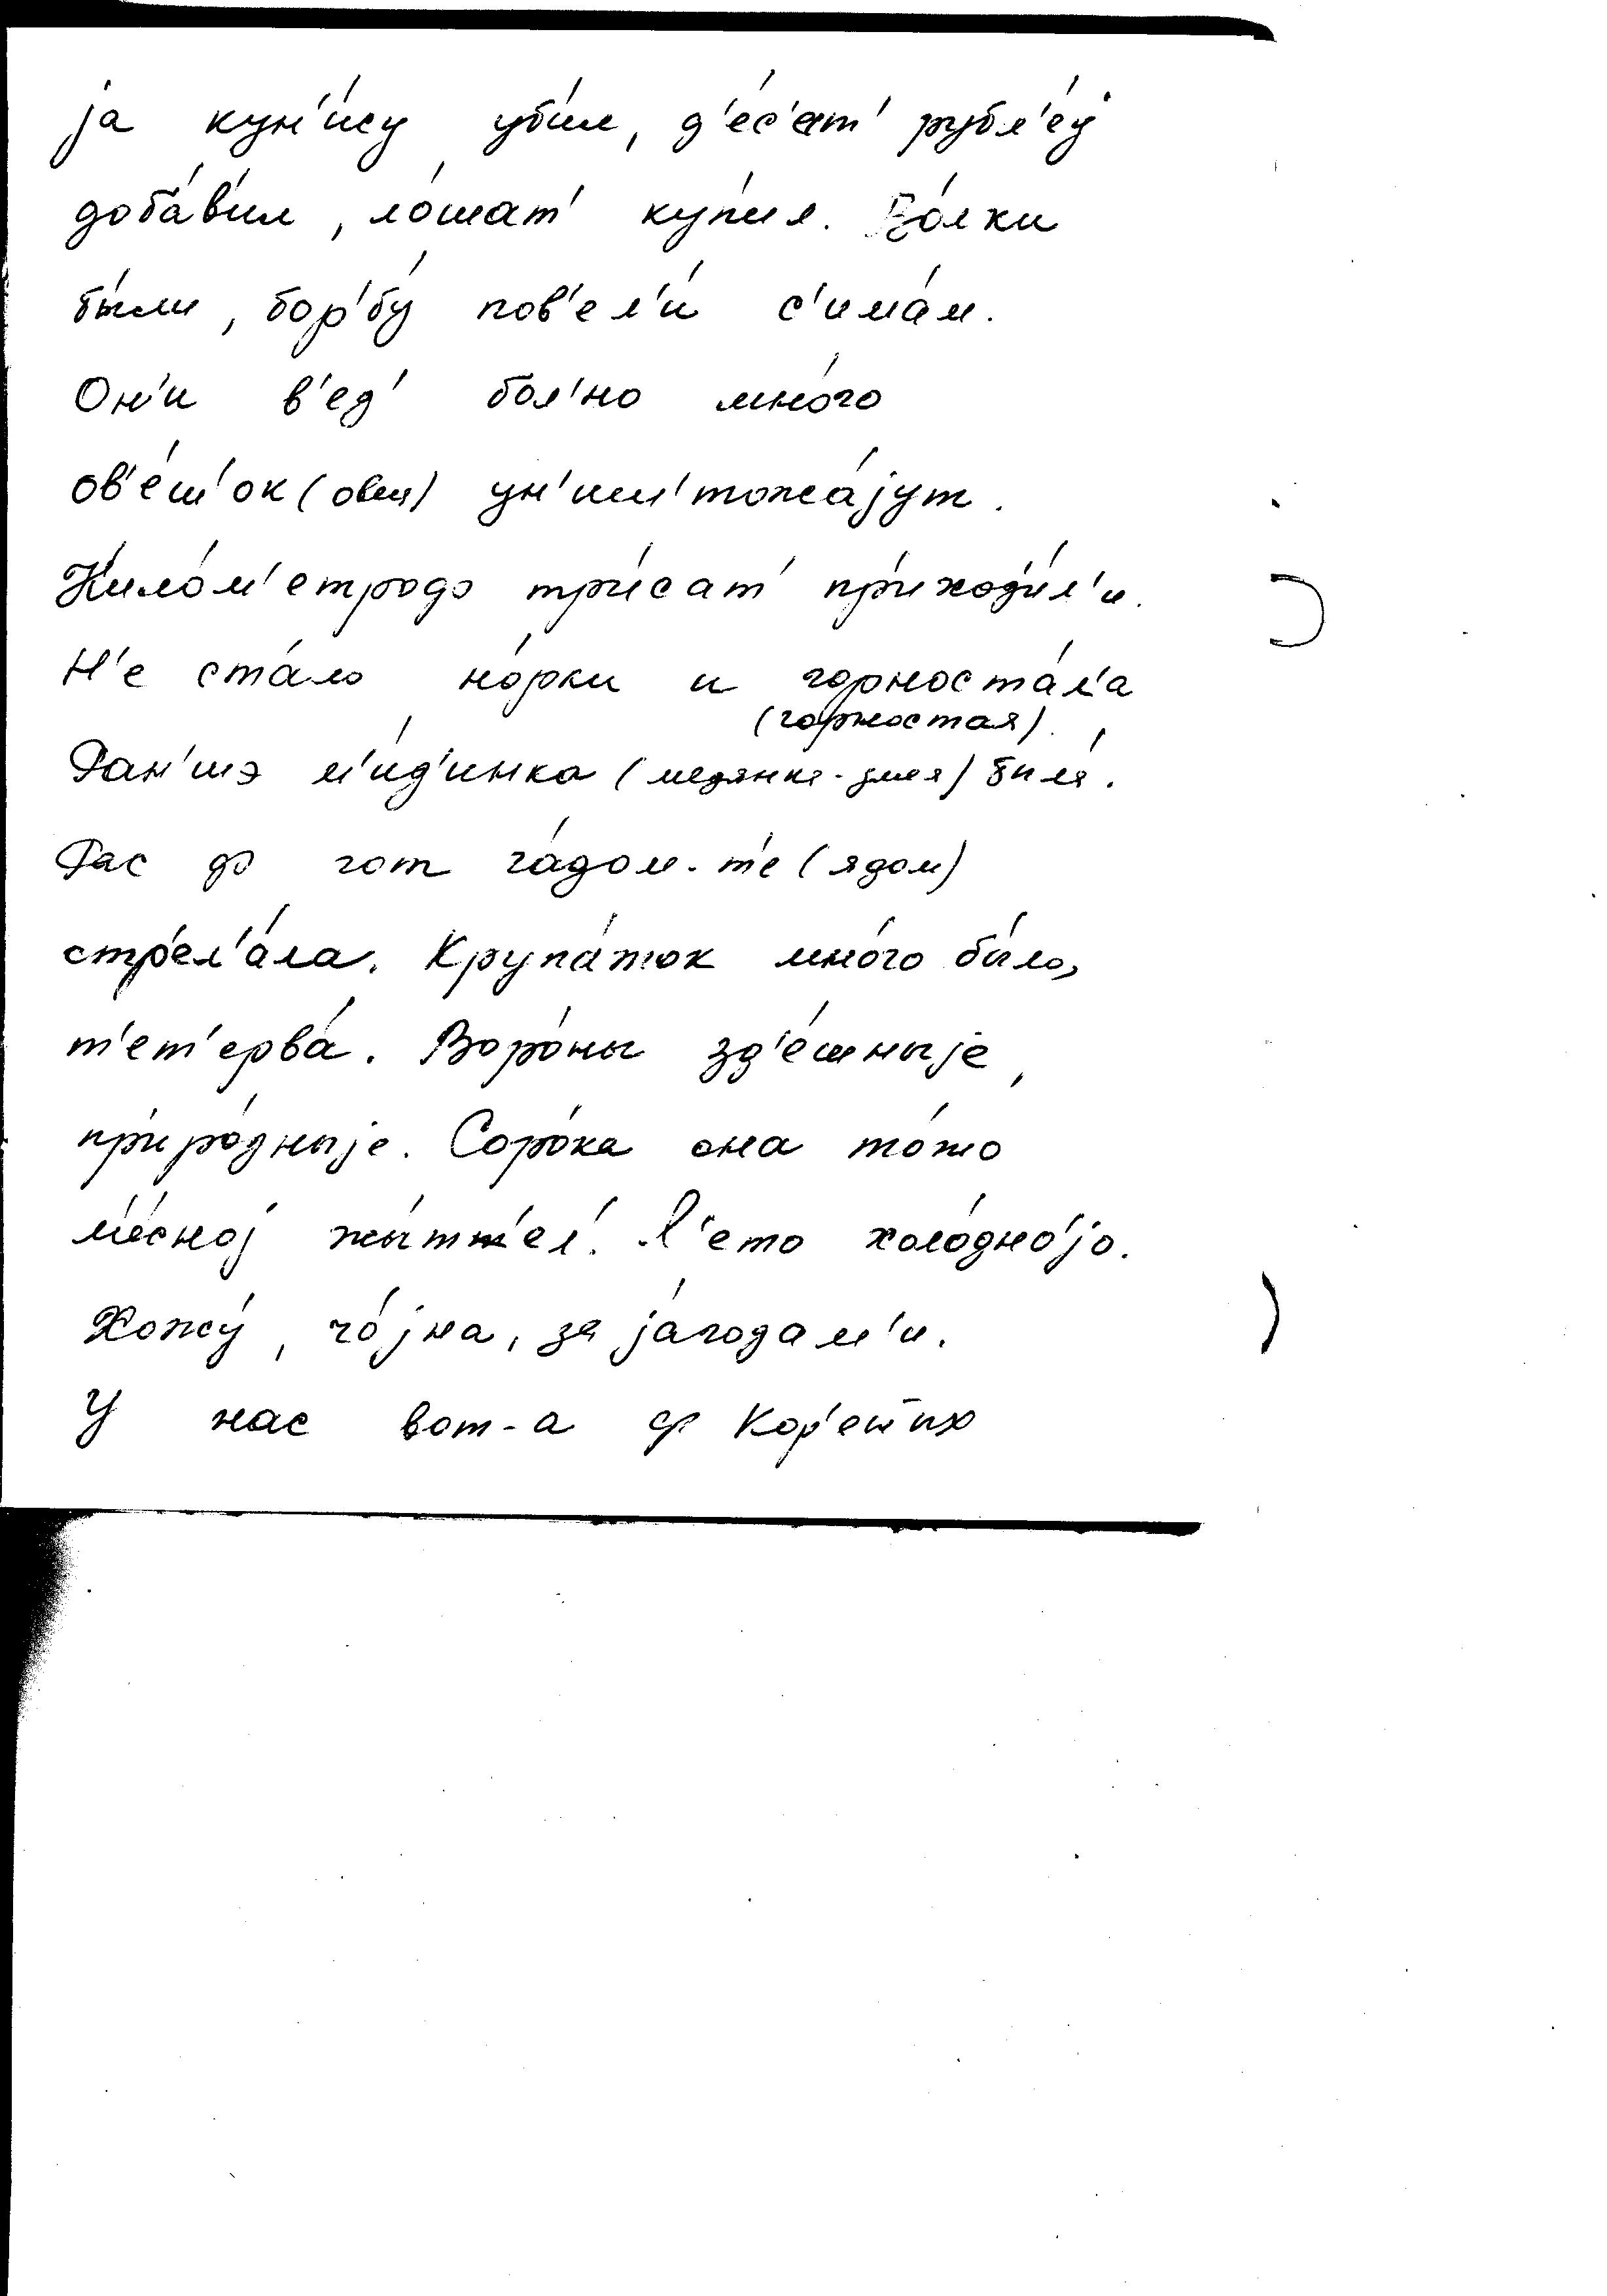 ја кун'и́су уби́л, д'ес'ат' рубл'е́ј
доба́в'ил, ло́шат' куп'и́л. Во́лки
бы́ли, бор'бу́ пов'ел'и́ с'има́м.
Он'и в'ед' бол'но мно́го
ов'е́ш'ок (овец) ун'иш'тожа́јут.
Кило́м'етродо три́сат' приход'и́л'и.
Н'е ста́ло но́рки и горноста́л'а
(горностая).
Ран'шэ м'и́д'инка (медянка-змея) била́.
Рас ф гот га́дом-т'е (ядом)
стрел'а́ла. Крупа́ток мно́го би́ло,
т'ет'ерва́. Воро́ны зд'е́шныје,
приро́дныје. Соро́ка она то́жо
м'е́сној жы́т'ел'. Л'ето холо́дно'јо.
Хожу́, чо́јна, за ја́годам'и.
У нас вот-а ф Кор'епих